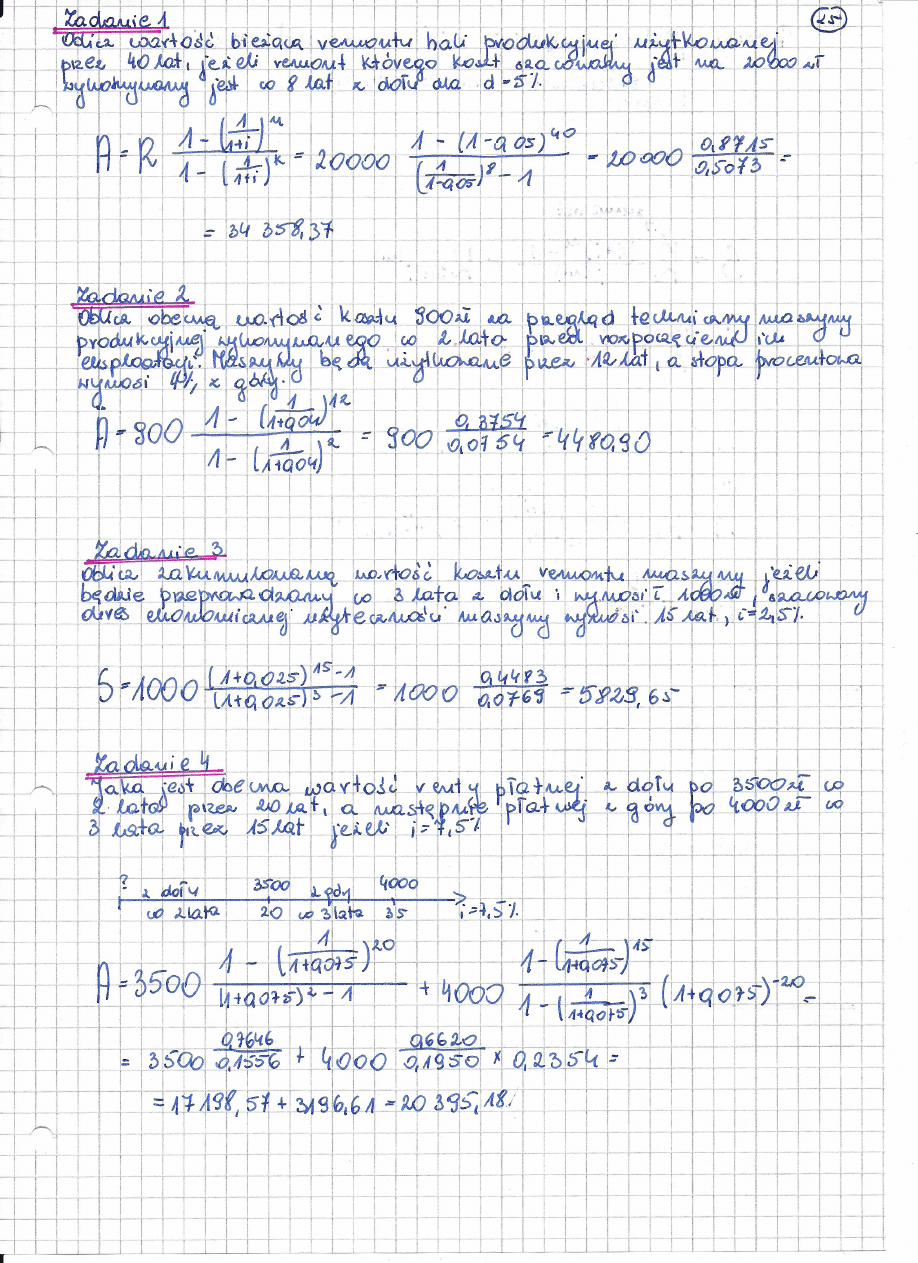 25
Zadanie 1
Oblicz wartość bieżącą remontu hali produkcyjnej użytkowanej
przez 40 lat, jeżeli remont którego koszt szacowany jest na 20000 zł
wykonywany jest co 8 lat z dołu dla d=5%.
A = R (1-(1/(1+i))^n)/(1-(1/(1+i))^k) = 20000 (1-(1-0,05)^40)/((1/(1-0,05))^8-1) = 20000 0,8715/0,5073 =
= 34 358,37
Zadanie 2
Oblicz obecną wartość kosztu 900zł za przegląd techniczny maszyny
produkcyjnej wykonywanego co 2 lata przed rozpoczęciem ich
eksploatacji. Maszyny będą użytkowane przez 12 lat, a stopa procentowa
wynosi 4%, z góry.
Ä = 900 (1-(1/(1+0,04))^12)/(1-(1/(1+0,04))^2) = 900 0,3754/0,0754 = 4480,90
Zadanie 3
Oblicz zakumulowaną wartość kosztu remontu maszyny jeżeli
będzie przeprowadzany co 3 lata z dołu i wynosi 1000zł, szacowany
okres ekonomicznej użyteczności maszyny wynosi 15 lat, i=2,5%.
S = 1000 ((1+0,025)^15-1)/((1+0,025)^3-1) = 1000 0,4483/0,0769 = 5829,65
Zadanie 4
Jaka jest obecna wartość renty płatnej z dołu po 3500 zł co
2 lata przez 20 lat, a następnie płatnej z góry po 4000 zł co
3 lata przez 15 lat jeżeli i=7,5%
? z dołu 3500 z góry 4000
co 2 lata 20 co 3 lata 35 i=7,5%
A = 3500 (1-(1/(1+0,075))^20)/((1+0,075)^2-1) + 4000 (1-(1/(1+0,075))^15)/(1-(1/(1+0,075))^3) (1+0,075)^-20 =
= 3500 0,7646/0,1556 + 4000 0,6620/0,1950 × 0,2354 =
= 17 198,57 + 3196,61 = 20 395,18.